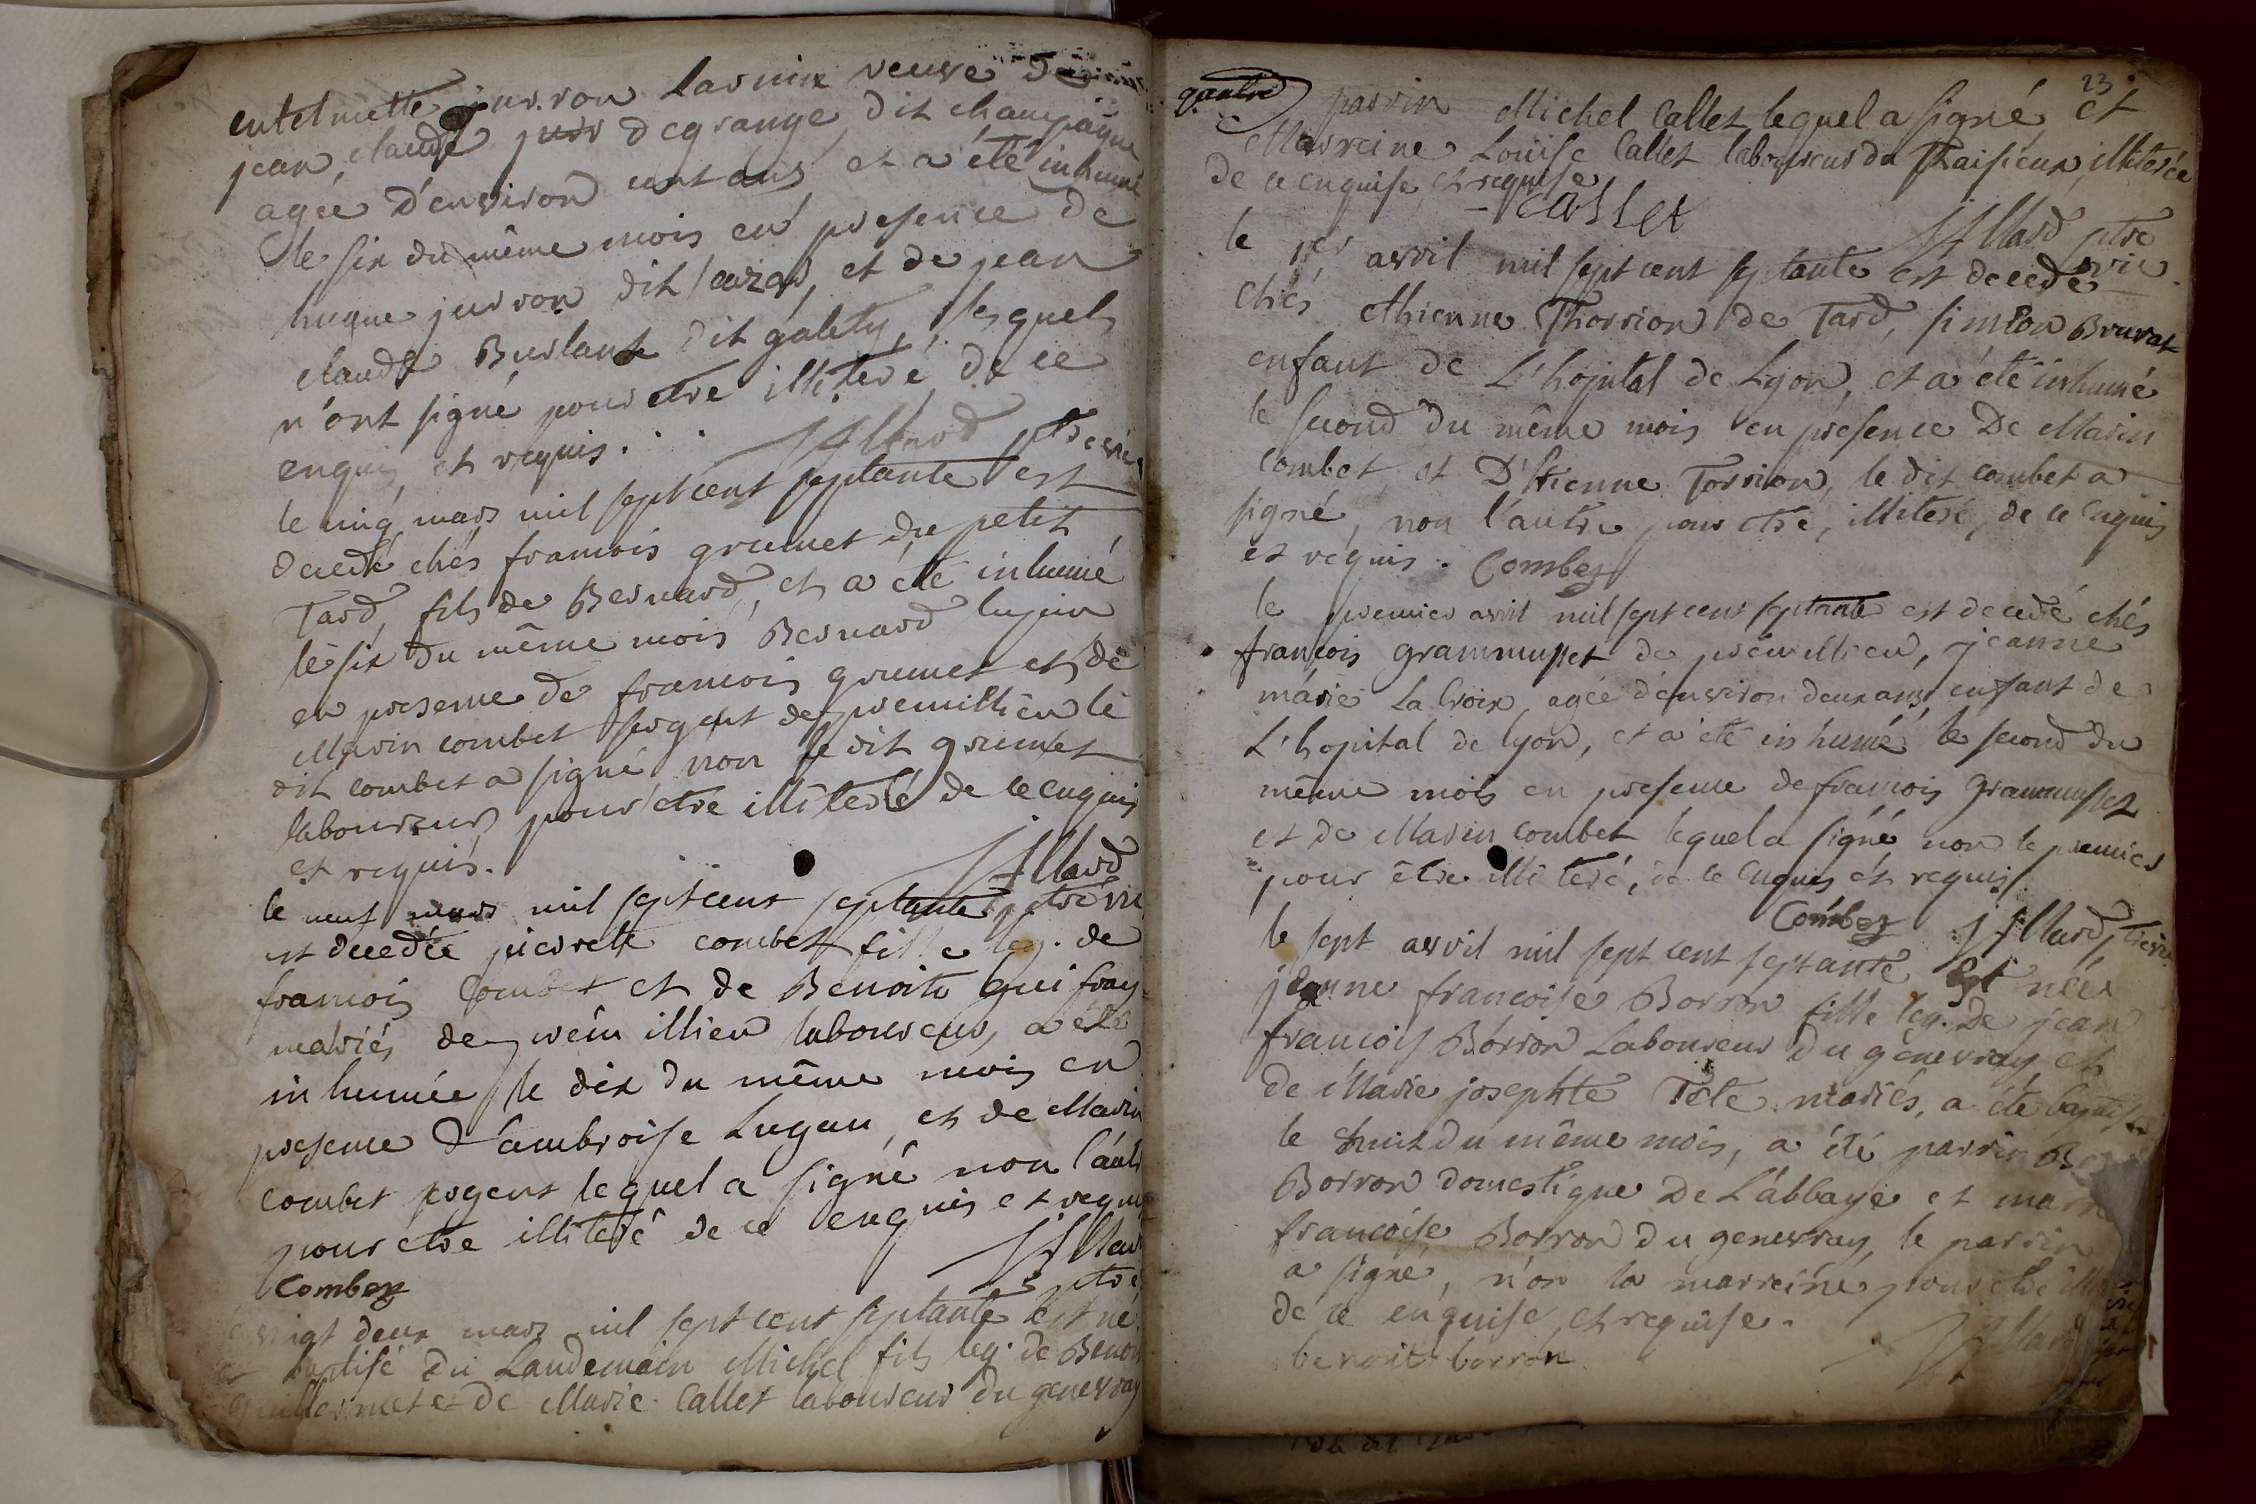 entelmette jurron Larnin veuve de
jean claude jurr degrange dit champagne
agée d'environ cent ans et a été inhumé
le six du même mois en presence de
hugue jurron dit et de jean
claude Burlant dit galety, lesquels
n'ont signé pour etre illiteré de ce
enquis et requis. J Allard ptre vic
le cinq mars mil sept cent septante est
decedé chés francois grumet du petit
Tard, fils de Bernard, et a été inhumé
le six du même mois Bernard lupin
en presence de francois grumet et de
Marin combet sergent de premillieu le
dit combet a signé non le dit grumet
laboureur pour etre illiteré de ce enquis
et requis. J Allard
le neuf mars mil sept cent septante ptre vic
est decedée pierrette combet fille leg. de
francois Combet et de Benoite guifray
mariés de prêmillieu laboureur, a été
inhumée le dix du même mois en
presence d'ambroise Lugan, et de Marin
combet sergent lequel a signé non l'autr
pour etre illiteré de ce enquis et requis
Combez J Allard ptre
vingt deux mars mil sept cent septante est né
et baptisé du Landemain Michel fils leg. de Benoit
guillermet et de Marie Callet laboureur du genevray
23
parrin Michel Callet lequel a signé et
Marreine Louise Callet laboureur du Thaisieux illiterée
de ce enquise et requise
callet J Allard ptre vic
le 1er avril mil sept cent septante est decedé
chés Ethienne Thorrion de Tard, simeon Bruvat
enfant de L'hopital de Lyon, et a été inhumé
le second du même mois en presence De Marin
combet et D'Etienne Torrion, le dit combet a
signé, non l'autre pour etre, illiteré, de ce enquis
et requis. Combez
le premier avril mil sept cent septante est decedé chés
françois grammusset de prêmillieu, jeanne
marie La Croix, agée d'environ deux ans, enfant de
L'hopital de lyon, et a été inhumé le second du
même mois en presence de françois grammusset
et de Marin combet lequel a signé non le premier
pour être illiteré, de ce enquis et requis.
Combez J Allard, ptre vic
le sept avril mil sept cent septante est née
jeanne francoise Borron fille leg. De jean
francois Borron Laboureur du genevray et
de Marie josephte Tete mariés, a été baptisée
le huit du même mois, a été parrin
Borron domestique De L'abbaye et marr
francoise Borron du genevray, le parrin
a signé, n'on la marreine pour etre
de ce enquise et requise.
benoit borron J Allard